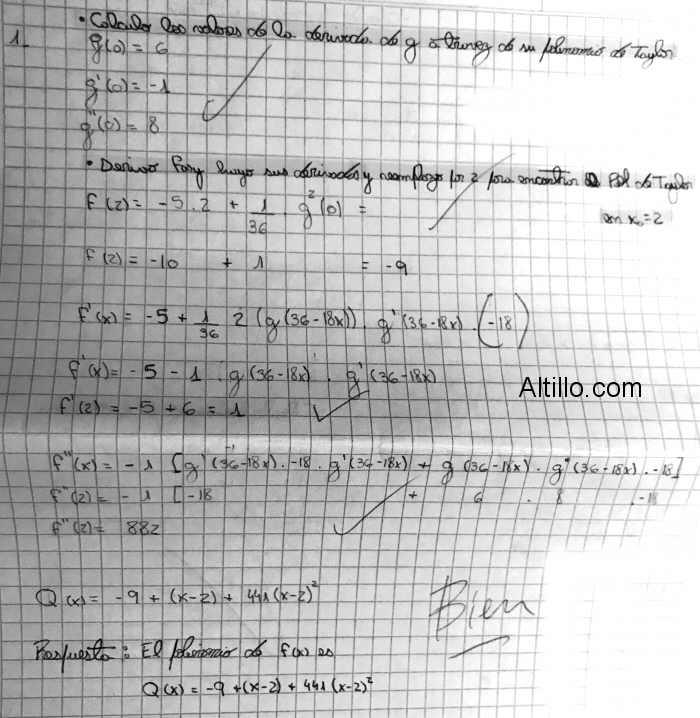 1_ • Calculo los valores de la derivada de g a través de su polinomio de Taylor
g(0) = 6
g'(0) = -1
g''(0) = 8
• Derivo f(x) y luego sus derivadas y reemplazo por 2 para encontrar Pol de Taylor
en x₀=2
f(2) = -5.2 + 1/36 . g²(0) =
f(2) = -10 + 1 = -9
f'(x) = -5 + 1/36 2 (g(36-18x)) . g'(36-18x) . (-18)
f'(x) = -5 - 1 . g(36-18x) . g'(36-18x)
Altillo.com
f'(2) = -5 + 6 = 1
f''(x) = -1 [g'(36-18x) . -18 . g'(36-18x) + g(36-18x) . g''(36-18x) . -18]
f''(2) = -1 [-18 + 6 . 8 . -18
f''(2) = 882
Q(x) = -9 + (x-2) + 441(x-2)²
Bien
Respuesta: El polinomio de f(x) es
Q(x) = -9 + (x-2) + 441(x-2)²